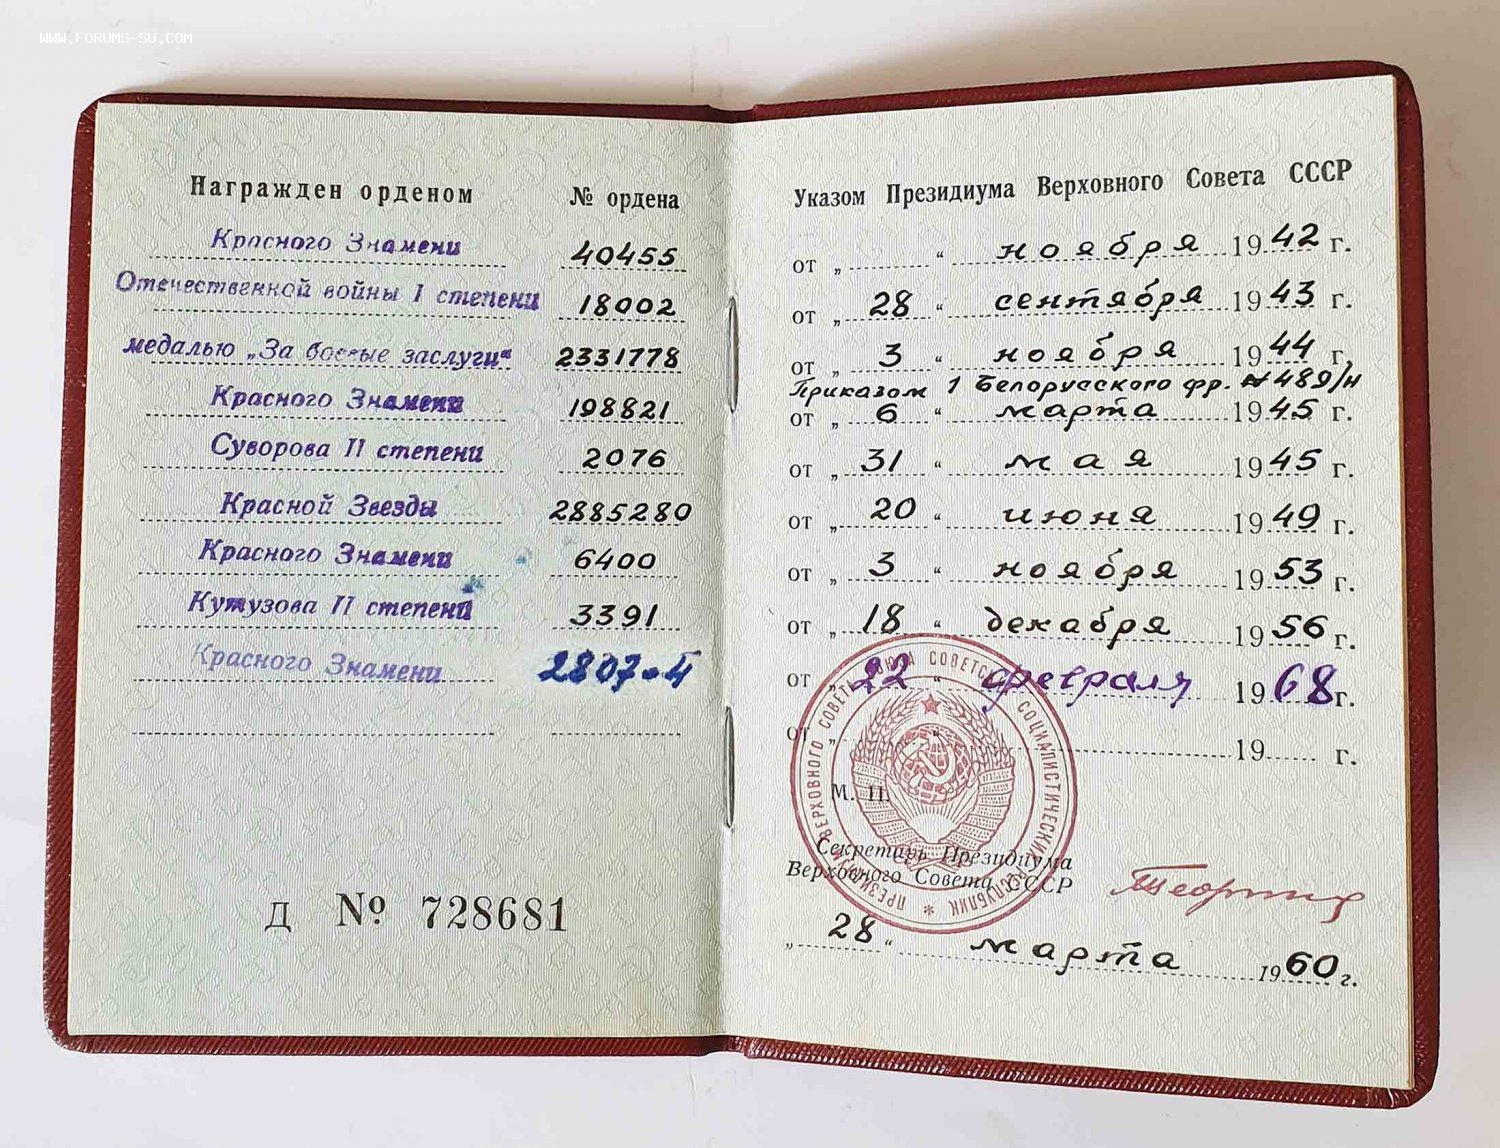 WWW.FORUMS-SU.COM
Награжден орденом № ордена
Красного Знамени 40455
Отечественной войны I степени 18002
медалью „За боевые заслуги“ 2331778
Красного Знамени 198821
Суворова II степени 2076
Красной Звезды 2885280
Красного Знамени 6400
Кутузова II степени 3391
Красного Знамени 2807-4
Д № 728681
Указом Президиума Верховного Совета СССР
от „ “ ноября 1942 г.
от „ 28 “ сентября 1943 г.
от „ 3 “ ноября 1944 г.
Приказом 1 Белорусского фр. № 489/н
от „ 6 “ марта 1945 г.
от „ 31 “ мая 1945 г.
от „ 20 “ июня 1949 г.
от „ 3 “ ноября 1953 г.
от „ 18 “ декабря 1956 г.
от „ 22 “ февраля 1968 г.
от „ “ 19 г.
ПРЕЗИДИУМ ВЕРХОВНОГО СОВЕТА СОЮЗА СОВЕТСКИХ СОЦИАЛИСТИЧЕСКИХ РЕСПУБЛИК
М. П.
Секретарь Президиума
Верховного Совета СССР
„ 28 “ марта 1960 г.